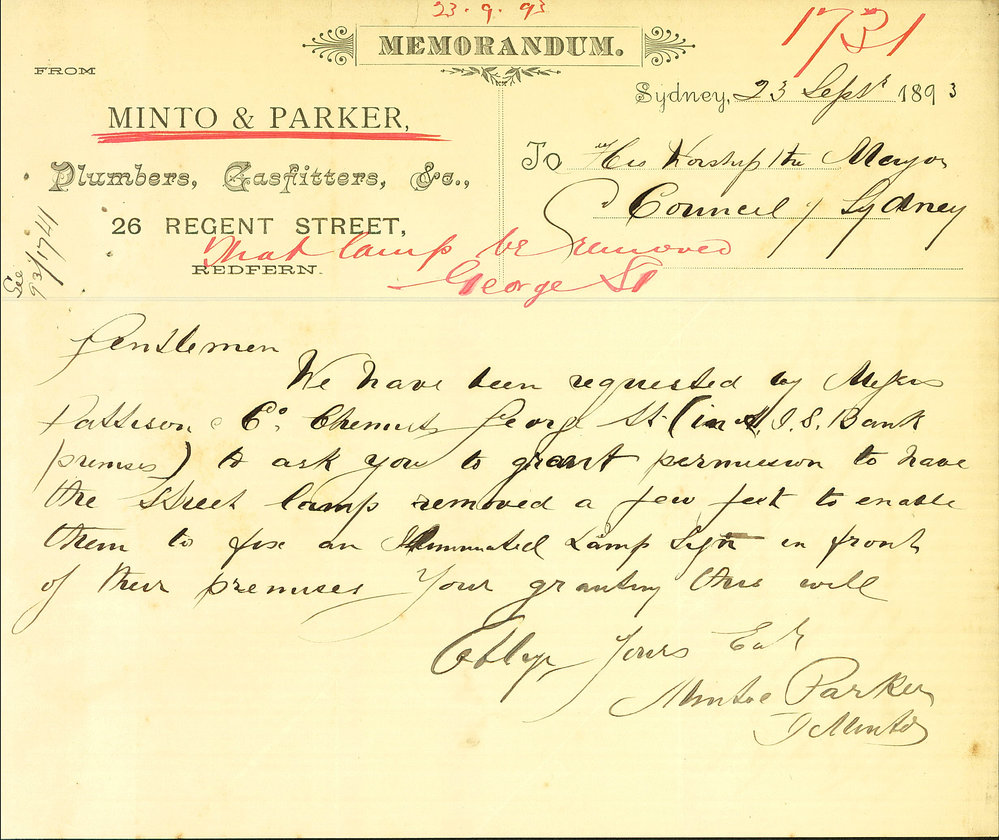 23 . 9 . 93
1731
MEMORANDUM.
FROM
Sydney, 23 Septr 1893
MINTO & PARKER,
To His Worship the Mayor
Plumbers, Gasfitters, &c.,
Council of Sydney
26 REGENT STREET,
That lamp be removed
REDFERN.
George St
See
93/1741
Gentlemen
We have been requested by Messrs
Pattison & Co. Chemists George St (in A. J. S. Bank
premises) to ask you to grant permission to have
the street lamp removed a few feet to enable
them to fix an Illuminated Lamp Sign in front
of their premises Your granting this will
Oblige Yours
Minto & Parker
J Minto